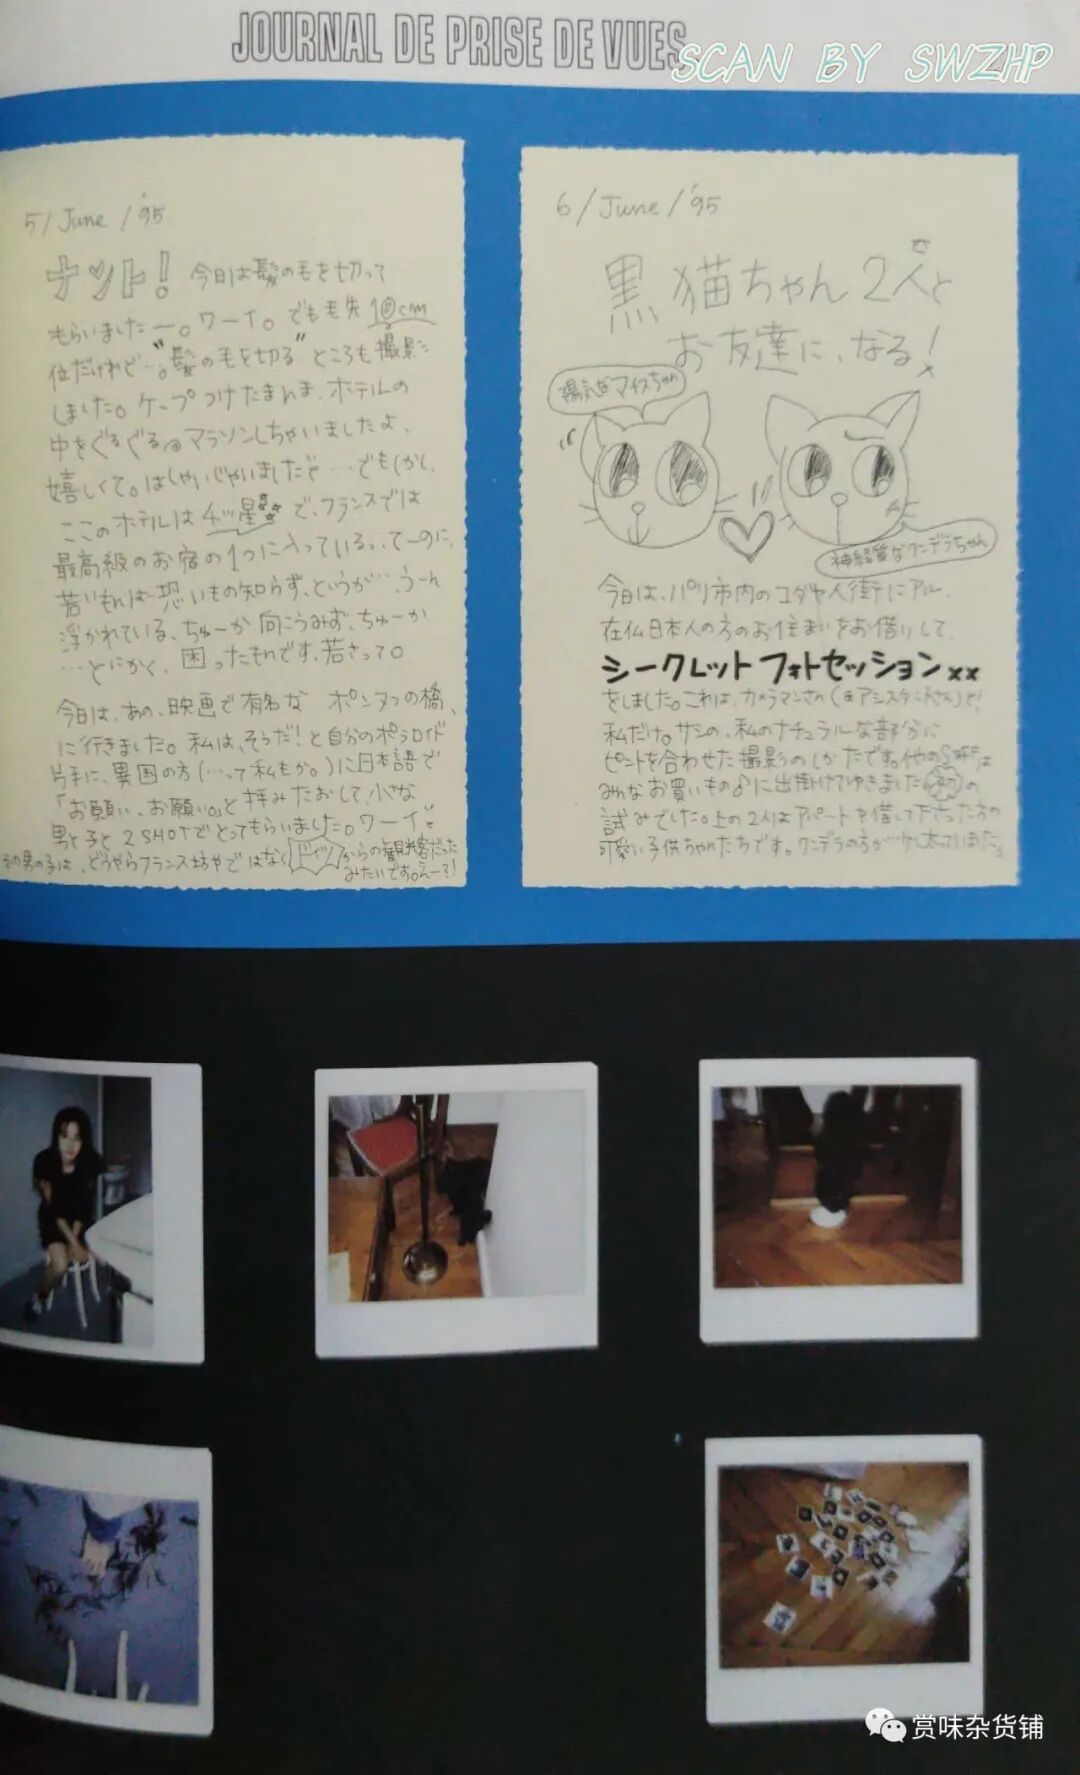 JOURNAL DE PRISE DE VUES
SCAN BY SWZHP
5/June/'95
ナット! 今日は髪の毛を切って
もらいましたー。ワーイ。でも毛先10cm
位だけれど…。"髪の毛を切る"ところも撮影
しました。ケープつけたまんま、ホテルの
中をぐるぐる@マラソンしちゃいましたよ、
嬉しくて。はしゃいじゃいましたぞ…でもしかし、
ここのホテルは4ッ星で、フランスでは
最高級のお宿の1つに入っている、、てーのに、
若いもんは恐いもの知らず、というか…、うーん
浮かれている、ちゅーか 向こうみず、ちゅーか
…とにかく、困ったもんです、若さって。
今日は、あの、映画で有名な ポンヌフの橋、
に行きました。私は、そうだ!と自分のポラロイド
片手に、異国の方(…って私もか。)に日本語で
「お願い、お願い。」と拝みたおして、小さな
男と子と2SHOTでとってもらいました。ワーイ。
その男の子は、どうやらフランス坊やではなく ドイツ からの観光客だった
みたいです。えーっ!
6/June/'95
黒猫ちゃん2人と
お友達に、なる!
陽気なマイスちゃん
神経質なクンデラちゃん
今日は、パリ市内のユダヤ人街にアル、
在仏日本人の方のお住まいをお借りして、
シークレット フォトセッション××
をしました。これは、カメラマンさん(&アシスタントさん)と、
私だけ。サシの、私のナチュラルな部分に
ピントを合わせた撮影のしかたです。他のSTAFFは
みんなお買いもの♪に出掛けてゆきました 初 の
試みでした。上の2人はアパートを借して下さった方の
可愛い子供ちゃんたちです。クンデラの方が少し太っていました。
赏味杂货铺